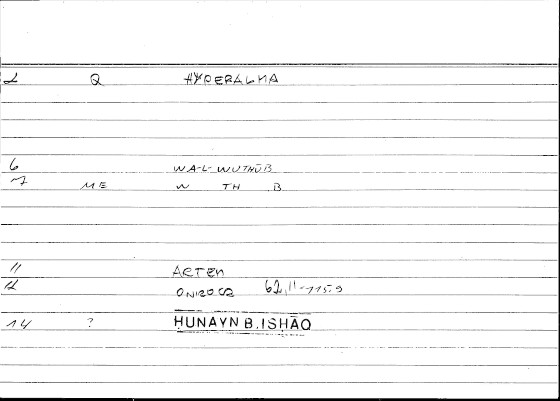 2 Q HYPERALMA
6 WA-L-WUTHŪB
7 ME W TH B
11 ARTEM
12 ONIROCR 62,11-115.9
14 ? HUNAYN B. ISHĀQ